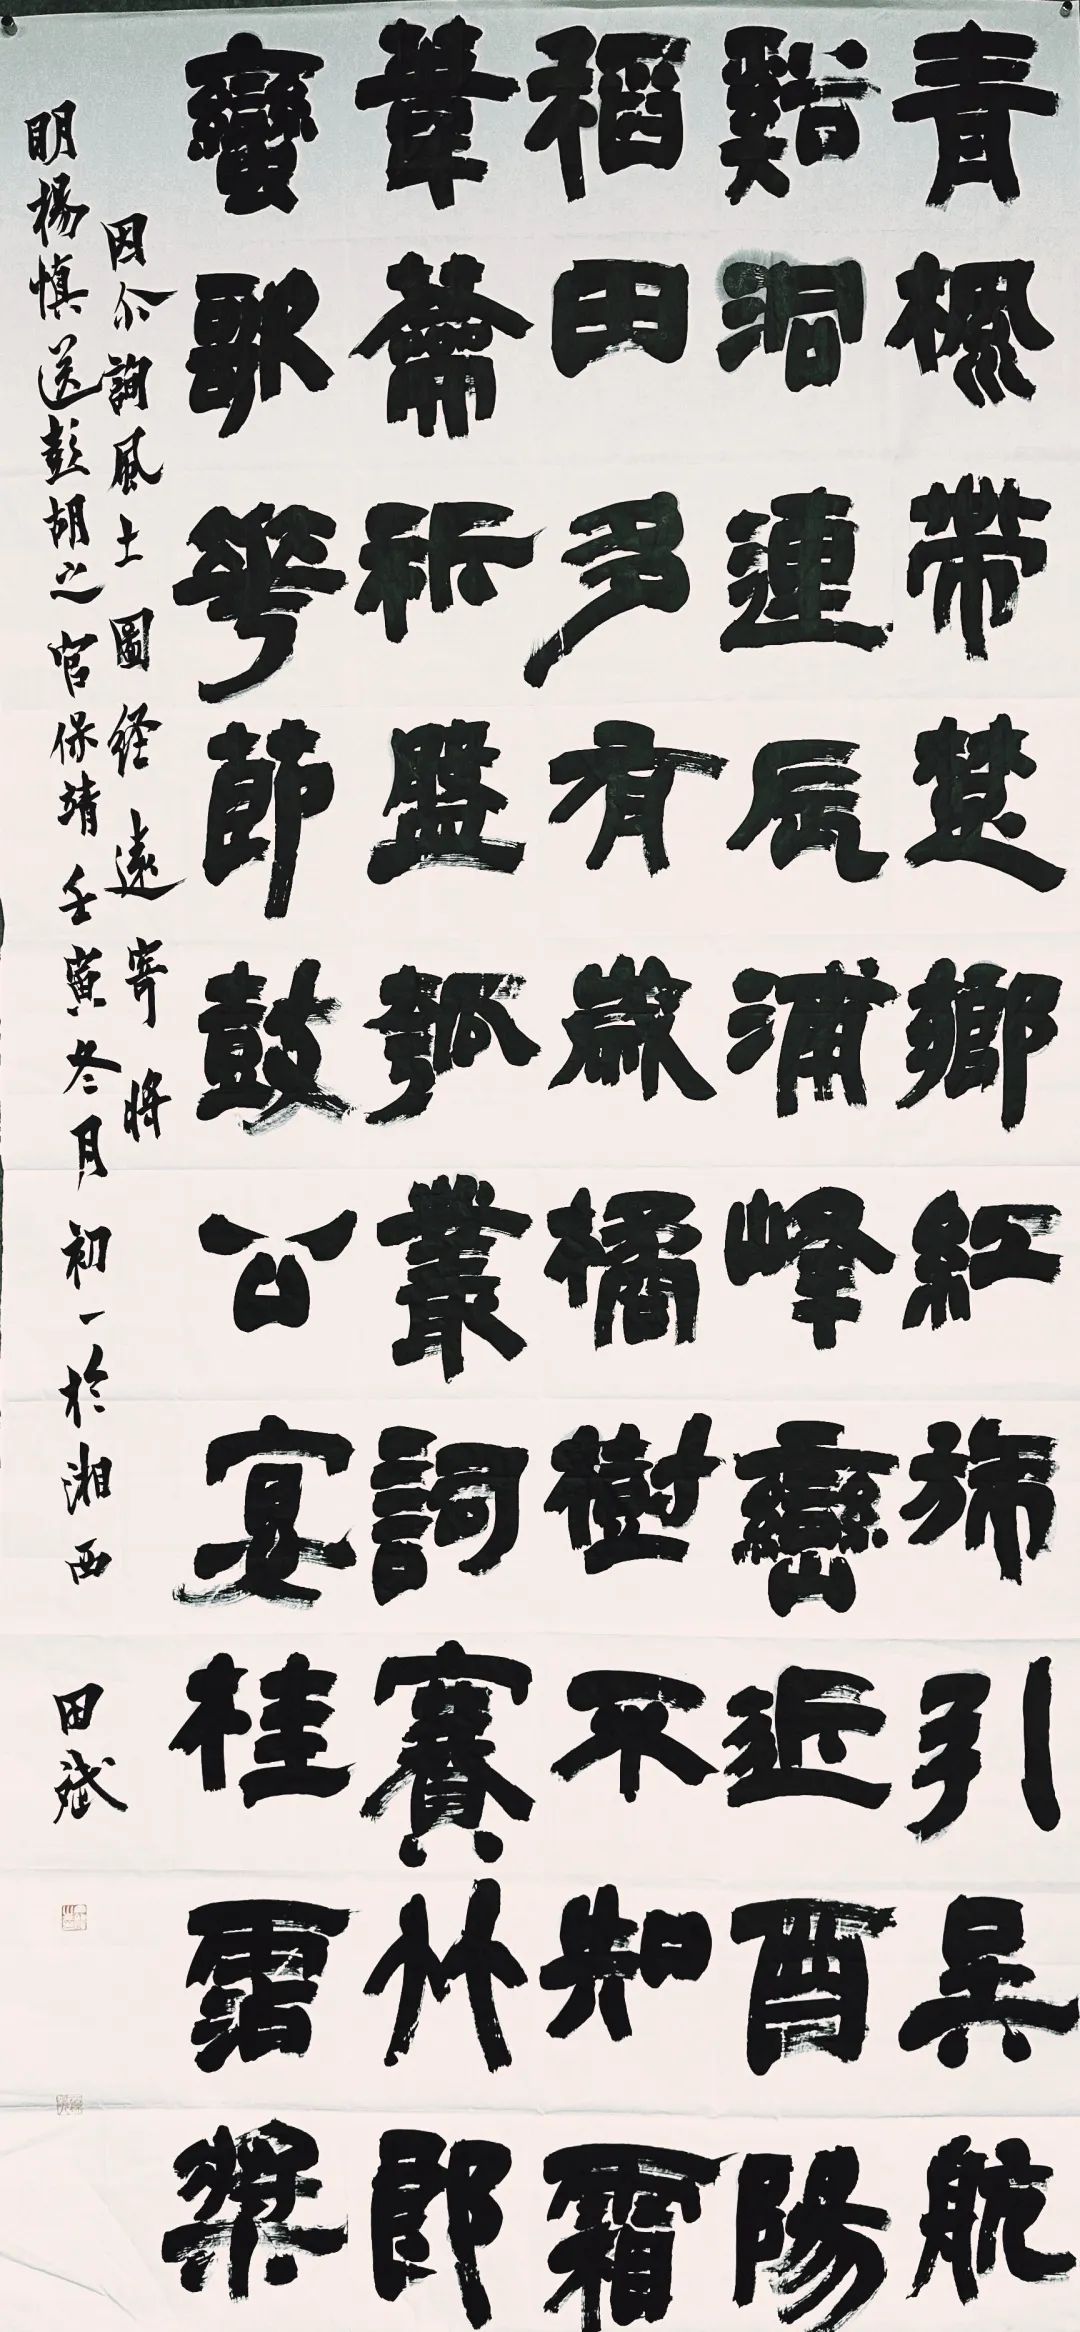 青楓帶楚鄉紅旆引吳航
谿洞連辰浦峰巒近酉陽
稻田多有歲橘樹不知霜
葦籥祈盤瓠叢詞賽竹郎
蠻歌華節鼓公宴桂露
因尒詢風土圖経遠寄將
明楊慎送彭胡之官保靖壬寅冬月初一於湘西 田斌